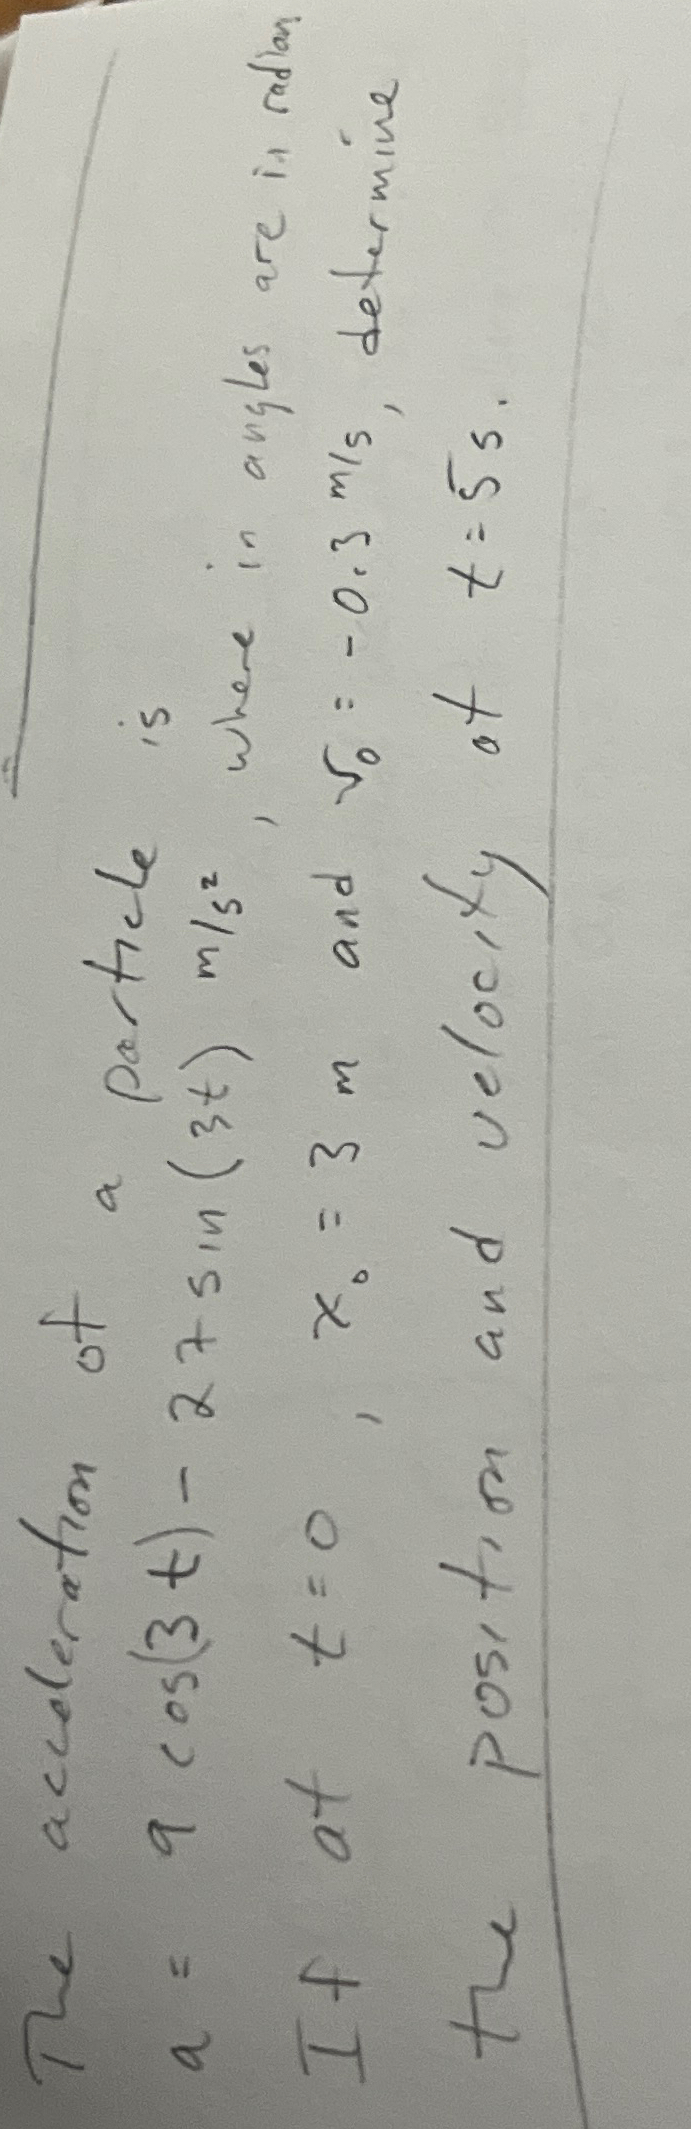 The acceleration of a particle is
a = 9 cos(3t) - 27 sin(3t) m/s², where in angles are in radian
If at t=0, x₀ = 3 m and v₀ = -0.3 m/s, determine
the position and velocity at t=5s.